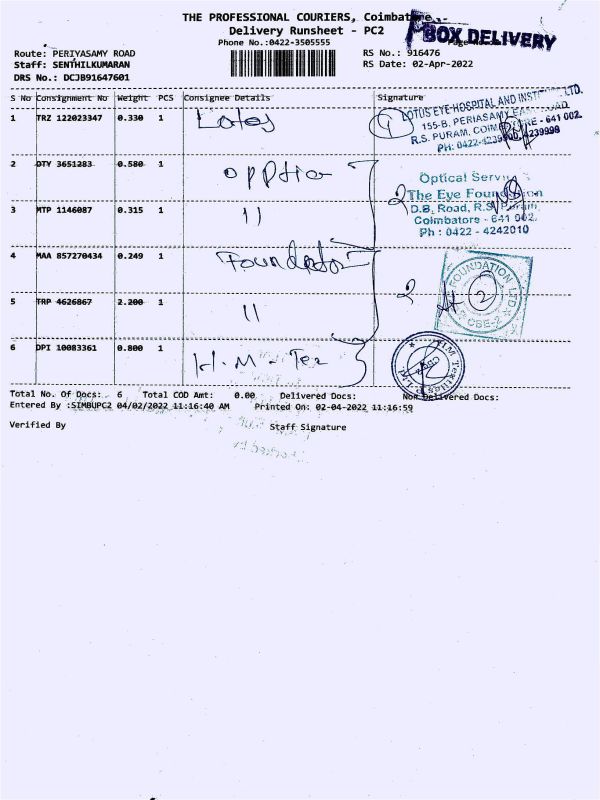 THE PROFESSIONAL COURIERS, Coimbatore
Delivery Runsheet - PC2
BOX DELIVERY
Phone No.:0422-3505555
Route: PERIYASAMY ROAD
RS No.: 916476
Staff: SENTHILKUMARAN
RS Date: 02-Apr-2022
DRS No.: DCJB91647601
S No Consignment No Weight PCS Consignee Details Signature
1 TRZ 122023347 0.330 1 Lotus
1
LOTUS EYE HOSPITAL AND LTD.
155-B, PERIASAMY
R.S. PURAM, COIMBATORE - 641 002.
PH: 0422-4239999
2 DTY 3651283 0.580 1
2
Optical
The Eye Foundation
D.B. Road, R.S. Puram,
Coimbatore - 641 002.
Ph : 0422 - 4242010
3 MTP 1146087 0.315 1 11
4 MAA 857270434 0.249 1 Foundation
2
FOUNDATION LTD
CBE-2
2
5 TRP 4626867 2.200 1 11
6 DPI 10083361 0.800 1 H.M-Tex
Total No. Of Docs: 6 Total COD Amt: 0.00 Delivered Docs: Non Delivered Docs:
Entered By :SIMBUPC2 04/02/2022 11:16:40 AM Printed On: 02-04-2022 11:16:59
Verified By Staff Signature